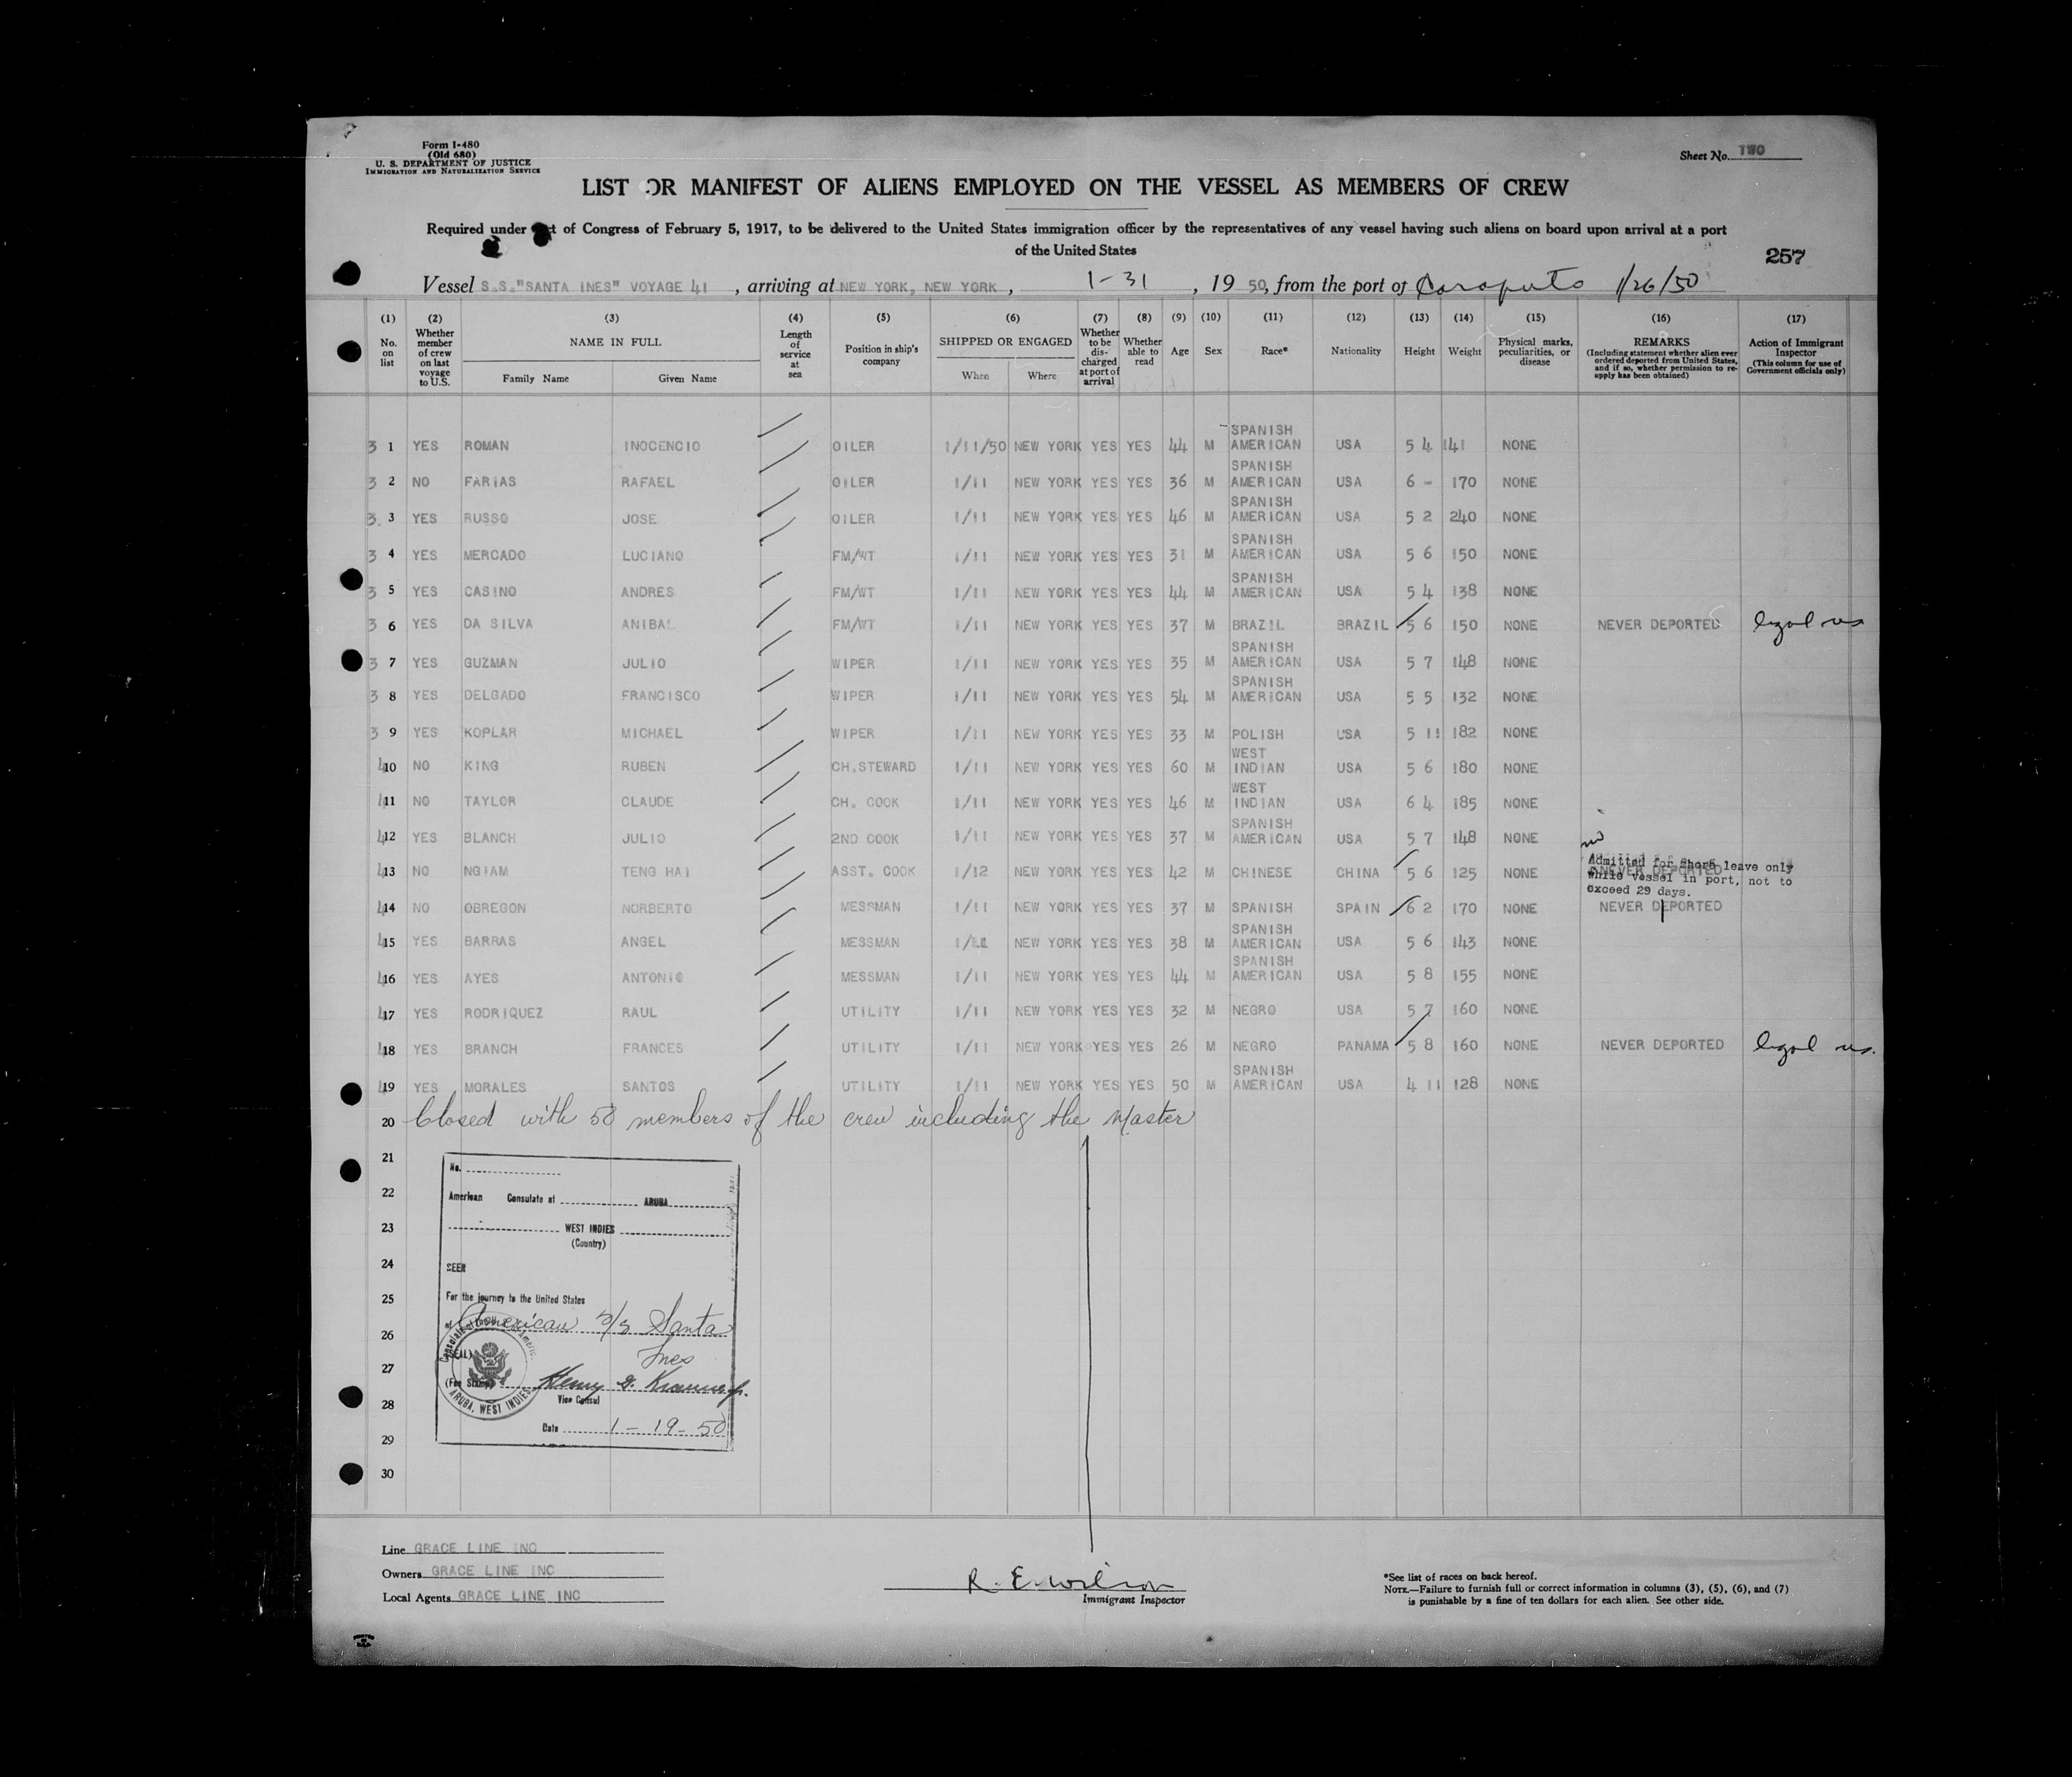 Form I-480
(Old 680)
U. S. DEPARTMENT OF JUSTICE
IMMIGRATION AND NATURALIZATION SERVICE
Sheet No. TWO
LIST OR MANIFEST OF ALIENS EMPLOYED ON THE VESSEL AS MEMBERS OF CREW
Required under Act of Congress of February 5, 1917, to be delivered to the United States immigration officer by the representatives of any vessel having such aliens on board upon arrival at a port
of the United States
257
Vessel S.S."SANTA INES" VOYAGE 41, arriving at NEW YORK, NEW YORK, 1-31, 19 50, from the port of 1/26/50
(1) No. on list
(2) Whether member of crew on last voyage to U.S.
(3) NAME IN FULL Family Name Given Name
(4) Length of service at sea
(5) Position in ship's company
(6) SHIPPED OR ENGAGED When Where
(7) Whether to be discharged at port of arrival
(8) Whether able to read
(9) Age
(10) Sex
(11) Race*
(12) Nationality
(13) Height
(14) Weight
(15) Physical marks, peculiarities, or disease
(16) REMARKS (Including statement whether alien ever ordered deported from United States, and if so, whether permission to re-apply has been obtained)
(17) Action of Immigrant Inspector (This column for use of Government officials only)
3 1 YES ROMAN INOCENCIO OILER 1/11/50 NEW YORK YES YES 44 M SPANISH AMERICAN USA 5 4 141 NONE
3 2 NO FARIAS RAFAEL OILER 1/11 NEW YORK YES YES 36 M SPANISH AMERICAN USA 6 - 170 NONE
3. 3 YES RUSSO JOSE OILER 1/11 NEW YORK YES YES 46 M SPANISH AMERICAN USA 5 2 240 NONE
3 4 YES MERCADO LUCIANO FM/WT 1/11 NEW YORK YES YES 31 M SPANISH AMERICAN USA 5 6 150 NONE
3 5 YES CASINO ANDRES FM/WT 1/11 NEW YORK YES YES 44 M SPANISH AMERICAN USA 5 4 138 NONE
3 6 YES DA SILVA ANIBAL FM/WT 1/11 NEW YORK YES YES 37 M BRAZIL BRAZIL 5 6 150 NONE NEVER DEPORTED legal res
3 7 YES GUZMAN JULIO WIPER 1/11 NEW YORK YES YES 35 M SPANISH AMERICAN USA 5 7 148 NONE
3 8 YES DELGADO FRANCISCO WIPER 1/11 NEW YORK YES YES 54 M SPANISH AMERICAN USA 5 5 132 NONE
3 9 YES KOPLAR MICHAEL WIPER 1/11 NEW YORK YES YES 33 M POLISH USA 5 11 182 NONE
4 10 NO KING RUBEN CH.STEWARD 1/11 NEW YORK YES YES 60 M WEST INDIAN USA 5 6 180 NONE
4 11 NO TAYLOR CLAUDE CH. COOK 1/11 NEW YORK YES YES 46 M WEST INDIAN USA 6 4 185 NONE
4 12 YES BLANCH JULIO 2ND COOK 1/11 NEW YORK YES YES 37 M SPANISH AMERICAN USA 5 7 148 NONE
4 13 NO NGIAM TENG HAI ASST. COOK 1/12 NEW YORK YES YES 42 M CHINESE CHINA 5 6 125 NONE NEVER DEPORTED
Admitted for shore leave only
while vessel in port, not to
exceed 29 days.
4 14 NO OBREGON NORBERTO MESSMAN 1/11 NEW YORK YES YES 37 M SPANISH SPAIN 6 2 170 NONE NEVER DEPORTED
4 15 YES BARRAS ANGEL MESSMAN 1/11 NEW YORK YES YES 38 M SPANISH AMERICAN USA 5 6 143 NONE
4 16 YES AYES ANTONIO MESSMAN 1/11 NEW YORK YES YES 44 M SPANISH AMERICAN USA 5 8 155 NONE
4 17 YES RODRIQUEZ RAUL UTILITY 1/11 NEW YORK YES YES 32 M NEGRO USA 5 7 160 NONE
4 18 YES BRANCH FRANCES UTILITY 1/11 NEW YORK YES YES 26 M NEGRO PANAMA 5 8 160 NONE NEVER DEPORTED legal res.
4 19 YES MORALES SANTOS UTILITY 1/11 NEW YORK YES YES 50 M SPANISH AMERICAN USA 4 11 128 NONE
20 Closed with 50 members of the crew including the Master
21
22
23
24
25
26
27
28
29
30
No.
American Consulate at ARUBA
WEST INDIES
(Country)
SEEN
For the journey to the United States
of American S/S Santa
Ines
(SEAL)
(Fee Stamp) Henry G.
Vice Consul
Date 1-19-50
ARUBA, WEST INDIES
Line GRACE LINE INC
Owners GRACE LINE INC
Local Agents GRACE LINE INC
R. E. Wilson
Immigrant Inspector
*See list of races on back hereof.
NOTE.—Failure to furnish full or correct information in columns (3), (5), (6), and (7)
is punishable by a fine of ten dollars for each alien. See other side.